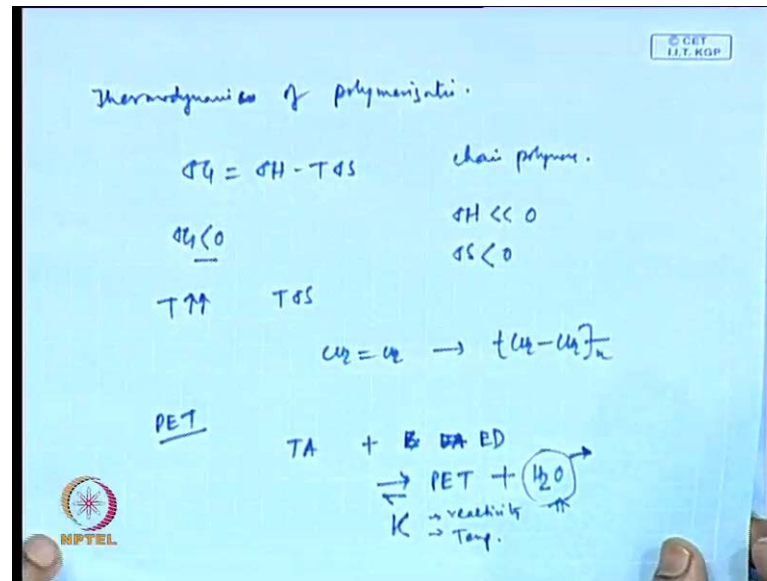 © CET
I.I.T. KGP
Thermodynamics of polymerizatio.
ΔG = ΔH - TΔS chain polymer.
ΔH << 0
ΔG < 0
ΔS < 0
T↑↑ TΔS
CH2 = CH2 → [CH2 - CH2]n
PET
TA + ED
⇌ PET + H2O →
K → reactivity
→ Temp.
NPTEL